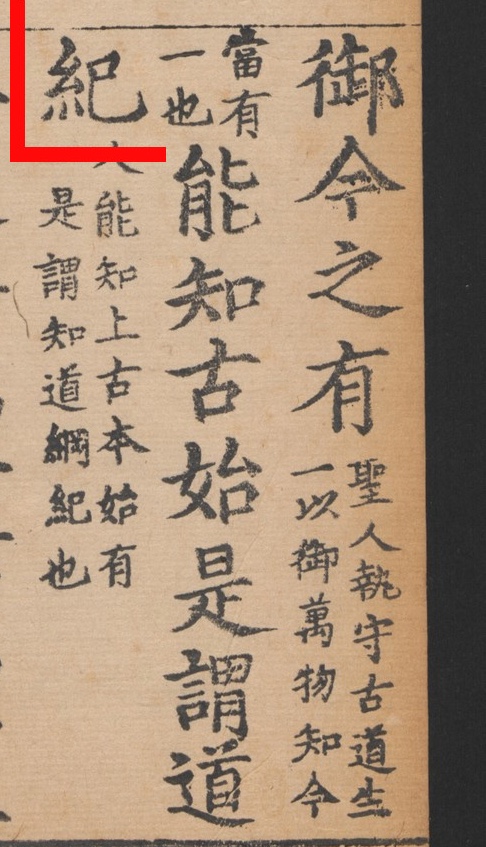 御今之有
聖人執守古道生
一以御萬物知今
當有
一也
能知古始是謂道
紀
人能知上古本始有
是謂知道綱紀也